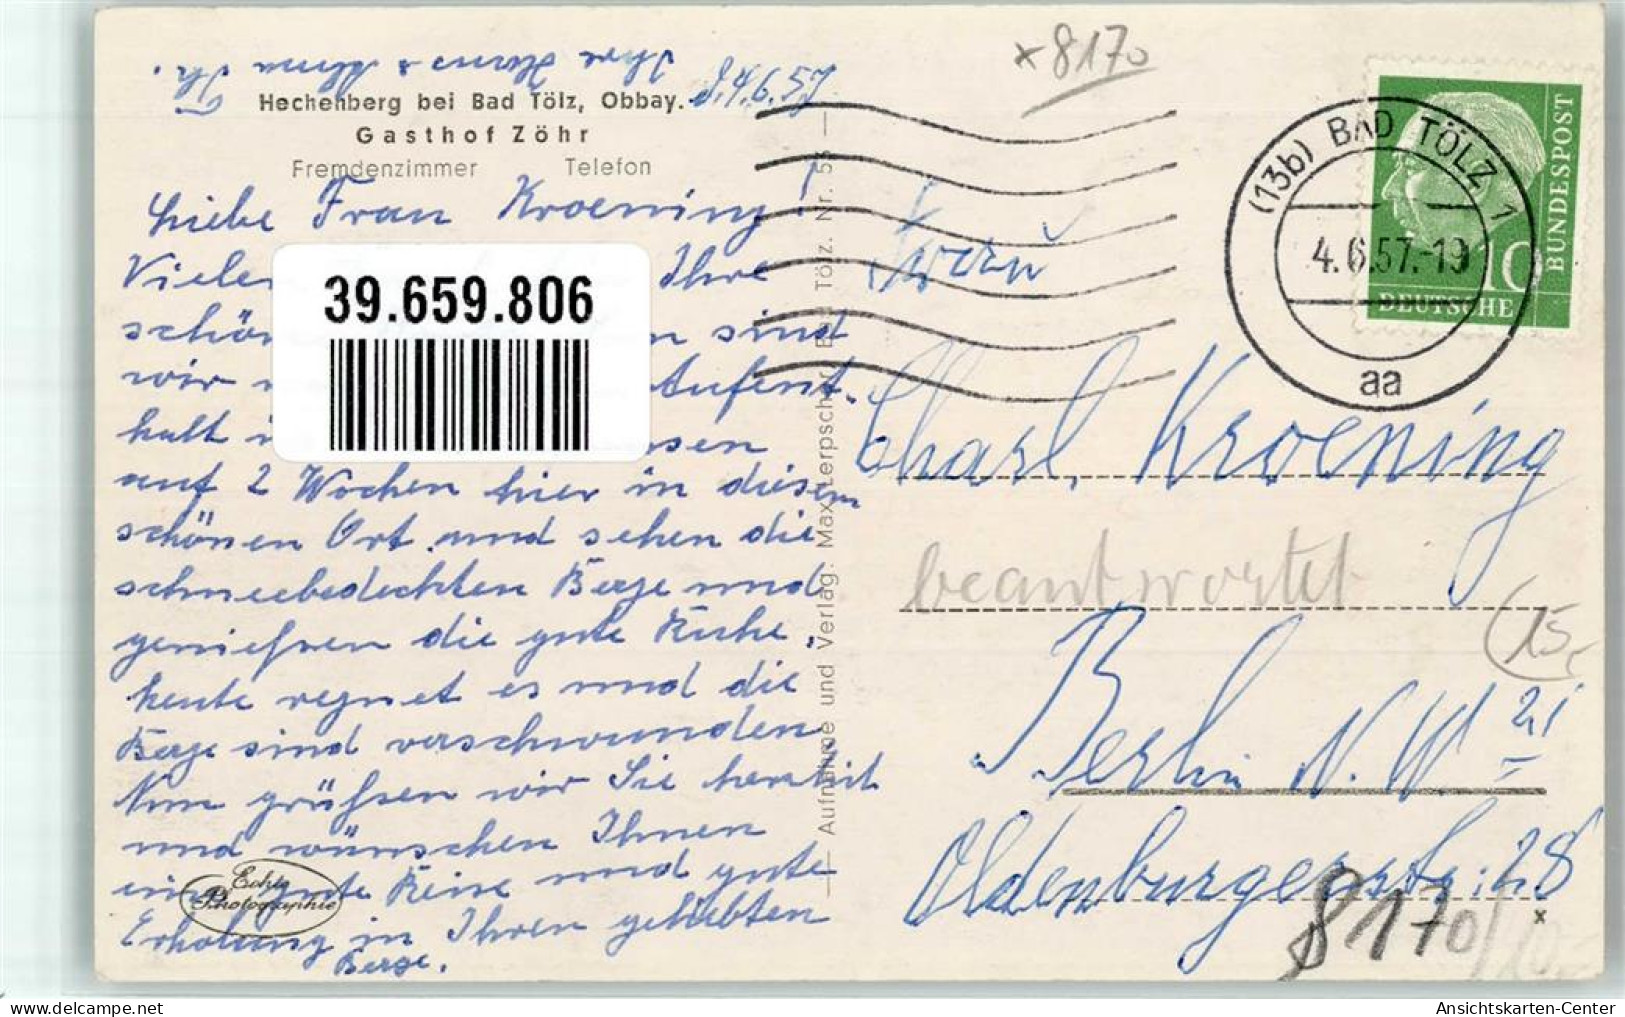 Ihre Hans & Anna Th.
d. 4.6.57
*8170
Hechenberg bei Bad Tölz, Obbay.
Gasthof Zöhr
Fremdenzimmer Telefon
Liebe Frau Kroening!
Vielen Ihre
schön n sind
wir Aufent-
halt sen
auf 2 Wochen hier in diesem
schönen Ort und sehen die
schneebedeckten Berge und
genießen die gute Küche.
heute regnet es und die
Berge sind verschwunden.
Nun grüßen wir Sie herzlich
und wünschen Ihnen
eine gute Reise und gute
Erholung in Ihren geliebten
Berge.
Echte
Photographie
39.659.806
Aufnahme und Verlag: Max Lerpscher, Bad Tölz. Nr. 5
(13b) BAD TÖLZ 1
4.6.57.-19
aa
DEUTSCHE
BUNDESPOST
10
Frau
Charl. Kroening
beantwortet
15,-
Berlin N.W. 21
Oldenburgerstr. 28
x
8170/
Ansichtskarten-Center